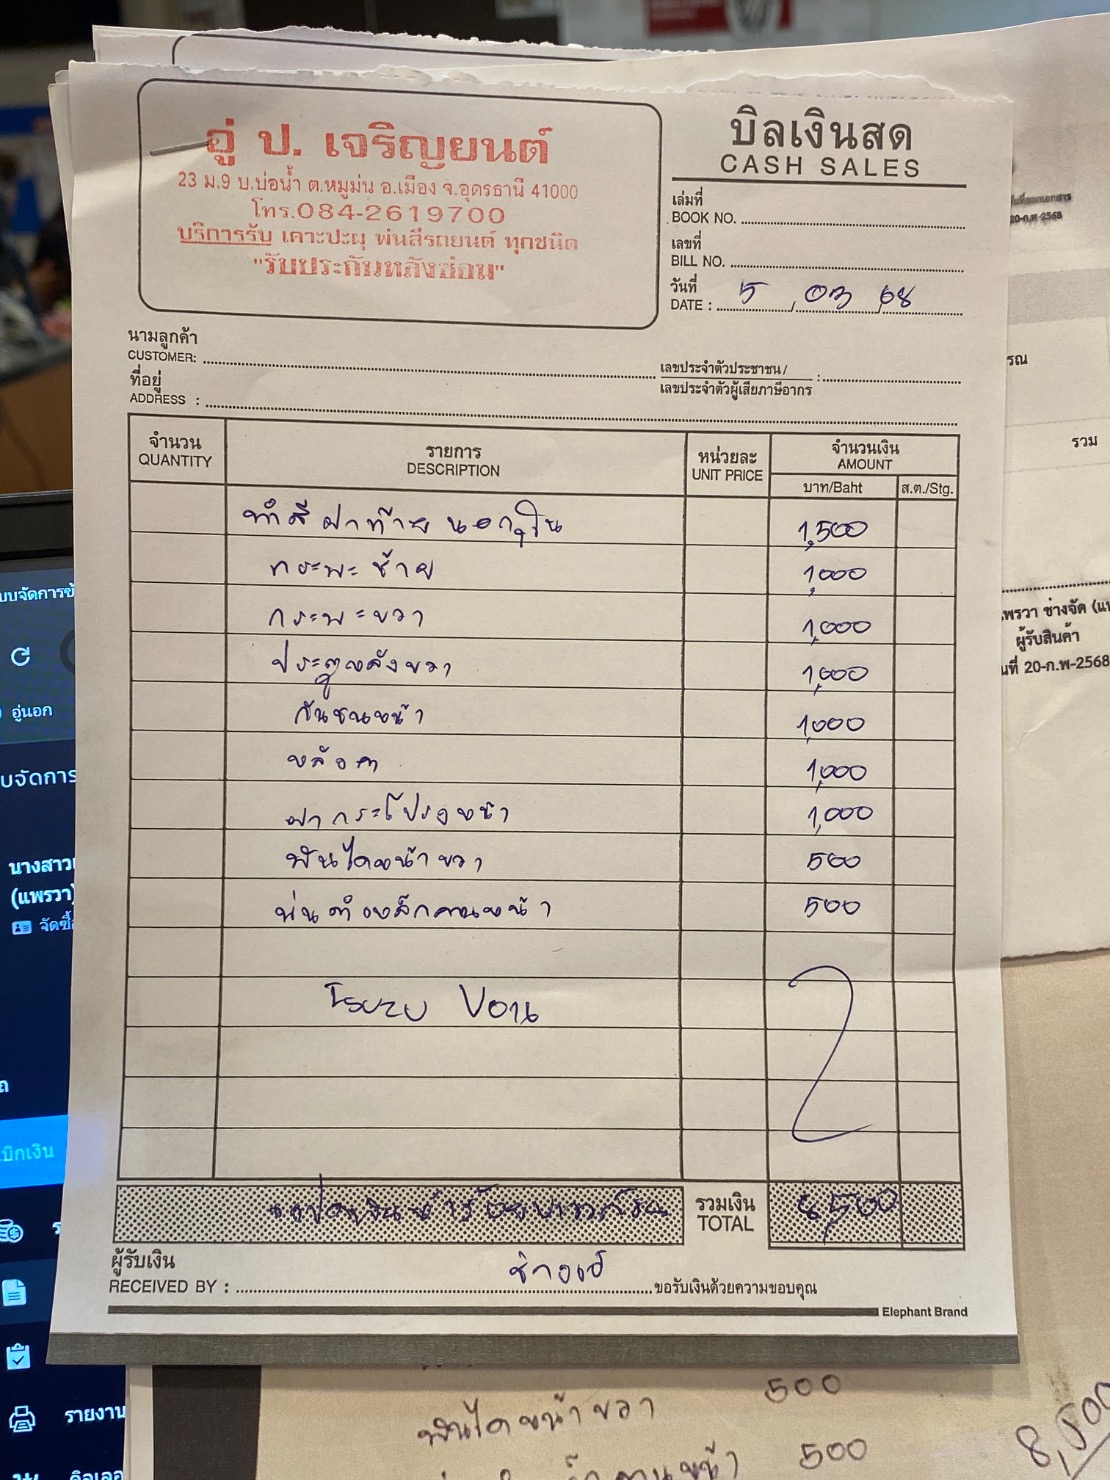 อู่ ป. เจริญยนต์
23 ม.9 บ.บ่อน้ำ ต.หมูม่น อ.เมือง จ.อุดรธานี 41000
โทร.084-2619700
บริการรับ เคาะปะผุ พ่นสีรถยนต์ ทุกชนิด
"รับประกันหลังซ่อม"
บิลเงินสด
CASH SALES
เล่มที่
BOOK NO.
เลขที่
BILL NO.
วันที่
DATE : 5 / 03 / 68
นามลูกค้า
CUSTOMER:
เลขประจำตัวประชาชน /
เลขประจำตัวผู้เสียภาษีอากร :
ที่อยู่
ADDRESS :
จำนวน QUANTITY รายการ DESCRIPTION หน่วยละ UNIT PRICE จำนวนเงิน AMOUNT
บาท/Baht ส.ต./Stg.
ทำสี ฝาท้าย นอก,ใน 1,500
กระพะซ้าย 1,000
กระพะขวา 1,000
ประตูหลังขวา 1,000
กันชนหน้า 1,000
หลังคา 1,000
ฝากระโปรงหน้า 1,000
บันไดหน้าขวา 500
พ่นดำเหล็กคานหน้า 500
ISUZU
รวมเงิน
TOTAL 8,500
ผู้รับเงิน
RECEIVED BY : ขอรับเงินด้วยความขอบคุณ
Elephant Brand
20-ก.พ-2568
รวม
ผู้รับสินค้า
ที่ 20-ก.พ-2568
อู่นอก
นางสาว
(แพรวา)
เบิกเงิน
รายงาน
บันไดหน้าขวา 500
คานหน้า 500
8,500